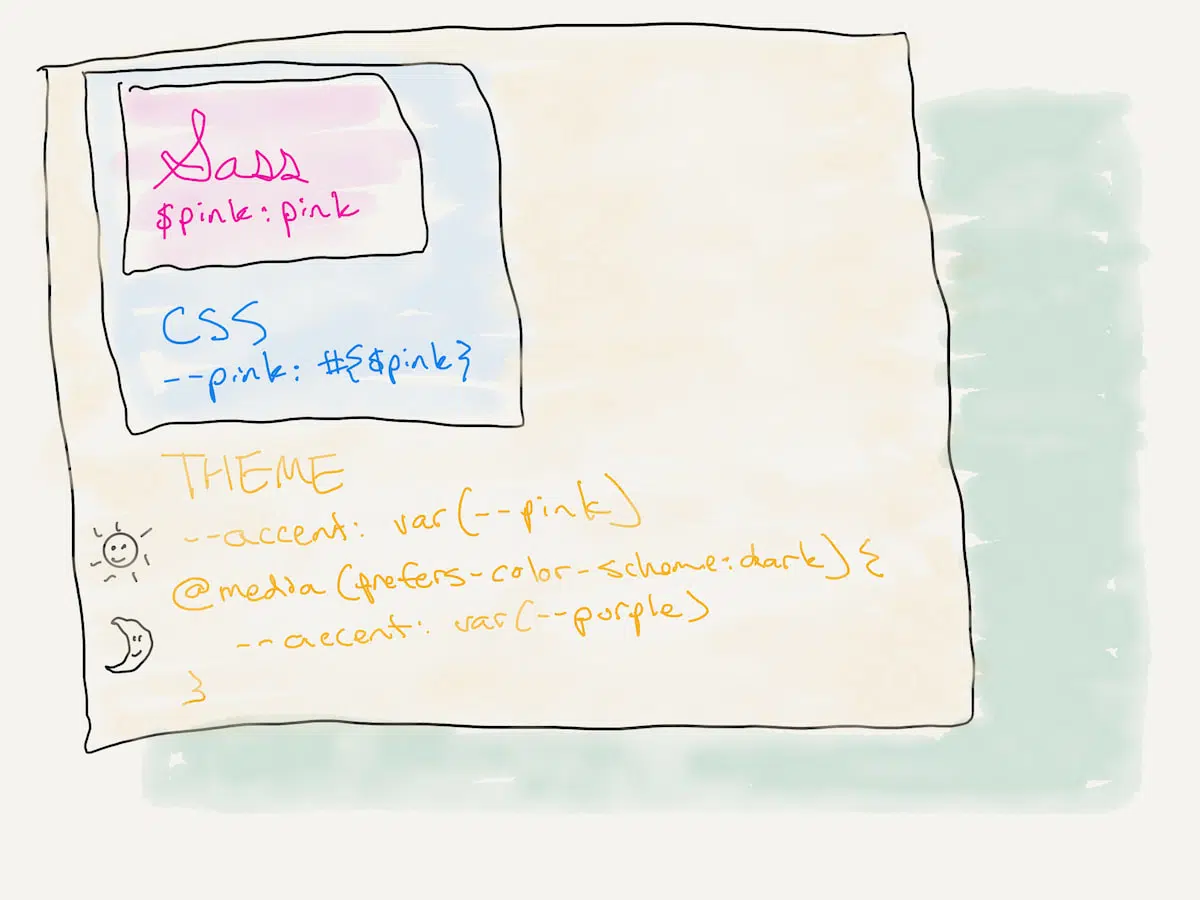 Sass
$pink: pink
CSS
--pink: #{$pink}
THEME
--accent: var(--pink)
@media (prefers-color-scheme: dark) {
--accent: var(--purple)
}